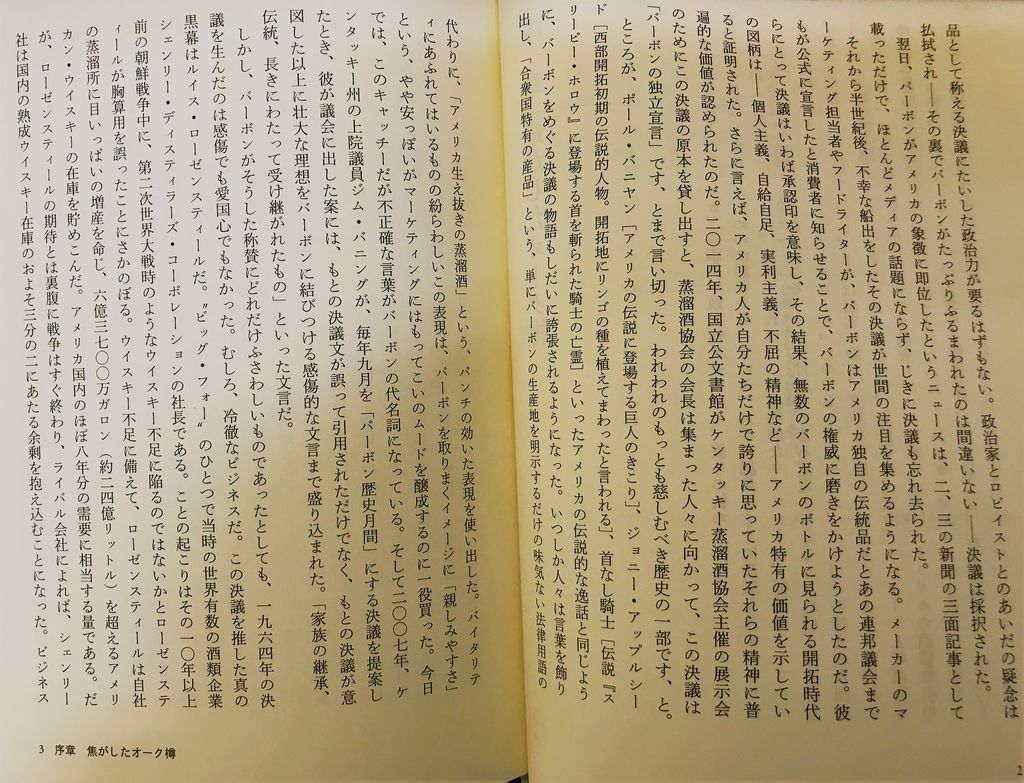 品として称える決議にたいした政治力が要るはずもない。政治家とロビイストとのあいだの疑念は
払拭され――その裏でバーボンがたっぷりふるまわれたのは間違いない――決議は採択された。
翌日、バーボンがアメリカの象徴に即位したというニュースは、二、三の新聞の三面記事として
載っただけで、ほとんどメディアの話題にならず、じきに決議も忘れ去られた。
それから半世紀後、不幸な船出をしたその決議が世間の注目を集めるようになる。メーカーのマ
ーケティング担当者やフードライターが、バーボンはアメリカ独自の伝統品だとあの連邦議会まで
もが公式に宣言したと消費者に知らせることで、バーボンの権威に磨きをかけようとしたのだ。彼
らにとって決議はいわば承認印を意味し、その結果、無数のバーボンのボトルに見られる開拓時代
の図柄は――個人主義、自給自足、実利主義、不屈の精神など――アメリカ特有の価値を示してい
ると証明された。さらに言えば、アメリカ人が自分たちだけで誇りに思っていたそれらの精神に普
遍的な価値が認められたのだ。二〇一四年、国立公文書館がケンタッキー蒸溜酒協会主催の展示会
のためにこの決議の原本を貸し出すと、蒸溜酒協会の会長は集まった人々に向かって、この決議は
「バーボンの独立宣言」です、とまで言い切った。われわれのもっとも慈しむべき歴史の一部です、と。
ところが、ポール・バニヤン［アメリカの伝説に登場する巨人のきこり］、ジョニー・アップルシー
ド［西部開拓初期の伝説的人物。開拓地にリンゴの種を植えてまわったと言われる］、首なし騎士［伝説『ス
リーピー・ホロウ』に登場する首を斬られた騎士の亡霊］といったアメリカの伝説的な逸話と同じよう
に、バーボンをめぐる決議の物語もしだいに誇張されるようになった。いつしか人々は言葉を飾り
出し、「合衆国特有の産品」という、単にバーボンの生産地を明示するだけの味気ない法律用語の
2
代わりに、「アメリカ生え抜きの蒸溜酒」という、パンチの効いた表現を使い出した。バイタリテ
ィにあふれてはいるものの紛らわしいこの表現は、バーボンを取りまくイメージに「親しみやすさ」
という、やや安っぽいがマーケティングにはもってこいのムードを醸成するのに一役買った。今日
では、このキャッチーだが不正確な言葉がバーボンの代名詞になっている。そして二〇〇七年、ケ
ンタッキー州の上院議員ジム・バニングが、毎年九月を「バーボン歴史月間」にする決議を提案し
たとき、彼が議会に出した案には、もとの決議文が誤って引用されただけでなく、もとの決議が意
図した以上に壮大な理想をバーボンに結びつける感傷的な文言まで盛り込まれた。「家族の継承、
伝統、長きにわたって受け継がれたもの」といった文言だ。
しかし、バーボンがそうした称賛にどれだけふさわしいものであったとしても、一九六四年の決
議を生んだのは感傷でも愛国心でもなかった。むしろ、冷徹なビジネスだ。この決議を推した真の
黒幕はルイス・ローゼンスティールだ。〝ビッグ・フォー〟のひとつで当時の世界有数の酒類企業
シェンリー・ディスティラーズ・コーポレーションの社長である。ことの起こりはその一〇年以上
前の朝鮮戦争中に、第二次世界大戦時のようなウイスキー不足に陥るのではないかとローゼンステ
ィールが胸算用を誤ったことにさかのぼる。ウイスキー不足に備えて、ローゼンスティールは自社
の蒸溜所に目いっぱいの増産を命じ、六億三七〇〇万ガロン（約二四億リットル）を超えるアメリ
カン・ウイスキーの在庫を貯めこんだ。アメリカ国内のほぼ八年分の需要に相当する量である。だ
が、ローゼンスティールの期待とは裏腹に戦争はすぐ終わり、ライバル会社によれば、シェンリー
社は国内の熟成ウイスキー在庫のおよそ三分の二にあたる余剰を抱え込むことになった。ビジネス
3 序章 焦がしたオーク樽